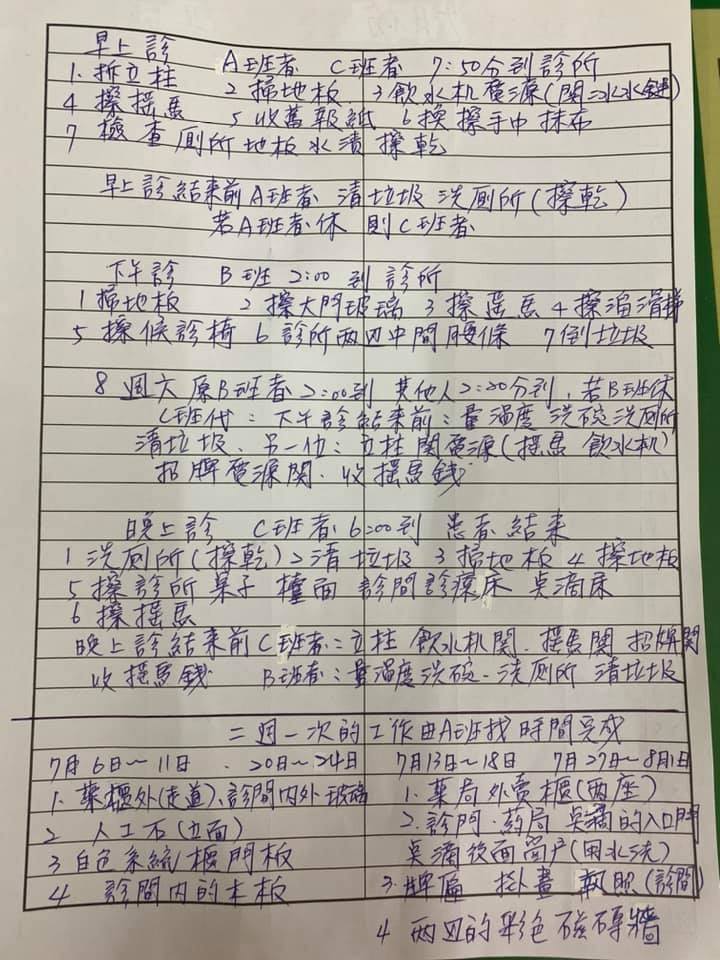 早上診　A班者　C班者　7:50分到診所
1. 拆立柱　2 掃地板　3 飲水机電源(関冰水鍵)
4 擦摇馬　5 收舊報紙　6 換擦手巾抹布
7 檢查厠所地板水漬擦乾
早上診結束前A班者 清垃圾 洗厠所(擦乾)
若A班者休 則C班者
下午診　B班 2:00 到診所
1 掃地板　2 擦大門玻璃　3 擦摇馬　4 擦溜滑梯
5 擦候診椅　6 診所兩边中間腰條　7 倒垃圾
8 週六 原B班者2:00到 其他人2:20分到,若B班休
C班代: 下午診結束前: 量温度 洗碗洗厠所
清垃圾、另一位: 立柱関電源(摇馬 飲水机)
招牌電源関、收摇馬錢
晚上診　C班者 6:00到　患者結束
1 洗厠所(擦乾) 2 清垃圾 3 掃地板 4 擦地板
5 擦診所桌子 檯面 診間診療床 点滴床
6 擦摇馬
晚上診結束前C班者: 立柱 飲水机関. 摇馬関 招牌関
收摇馬錢　B班者: 量温度洗碗、洗厠所 清垃圾
二週一次的工作由A班找時間完成
7月6日～11日　.20日～24日　7月13日～18日　7月27日～8月1日
1. 藥櫃外(走道)、診間内外玻璃
2 人工石(立面)
3 白色系統櫃門板
4 診間内的木板
1. 藥局外賣櫃(兩座)
2. 診門.药局 点滴的入口門
点滴後面窗户(用水洗)
3. 牌匾 掛畫 執照(診間)
4 兩边的彩色磁磚牆